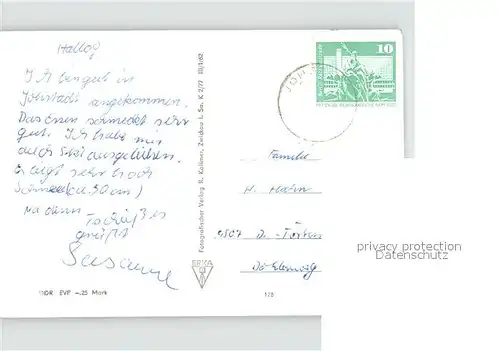 Hallo,
Ich bin gut in
Jöhstadt angekommen.
Das Essen schmeckt sehr
gut. Ich habe mir
auch Ski ausgeliehen.
Es liegt sehr hoch
Schnee (ca. 50 cm)
Na dann Tschüß es
grüßt
Susanne
DDR EVP -.25 Mark
Fotografischer Verlag R. Kallmer, Zwickau i. Sa. K 2/77 III/1/82
ERKA
128
10
Familie
H. Hahn
privacy protection
Datenschutz